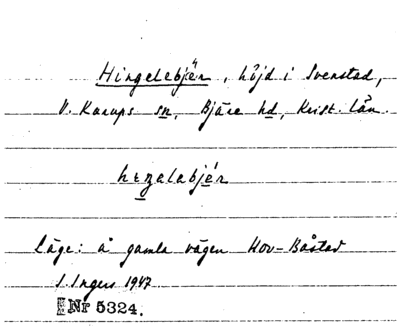 Hingelebjär, höjd i Svenstad,
V. Karups sn, Bjäre hd, Krist. län.
hɪŋalabjér
Läge: å gamla vägen Hov-Båstad
I. Ingers 1947
Nr 5324.